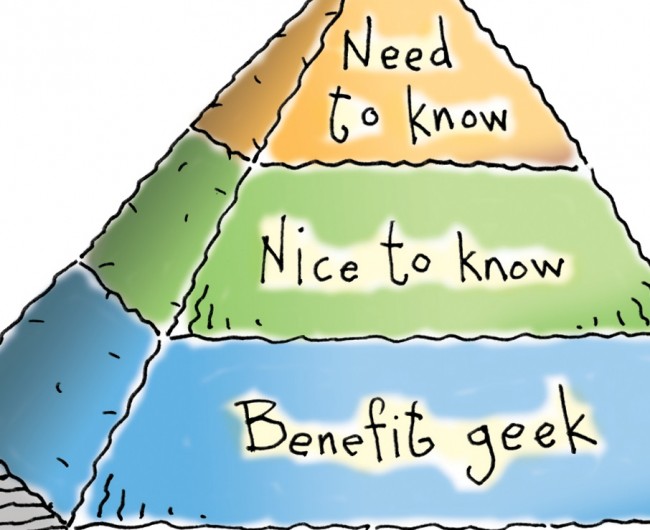 Need
to know
Nice to know
Benefit geek